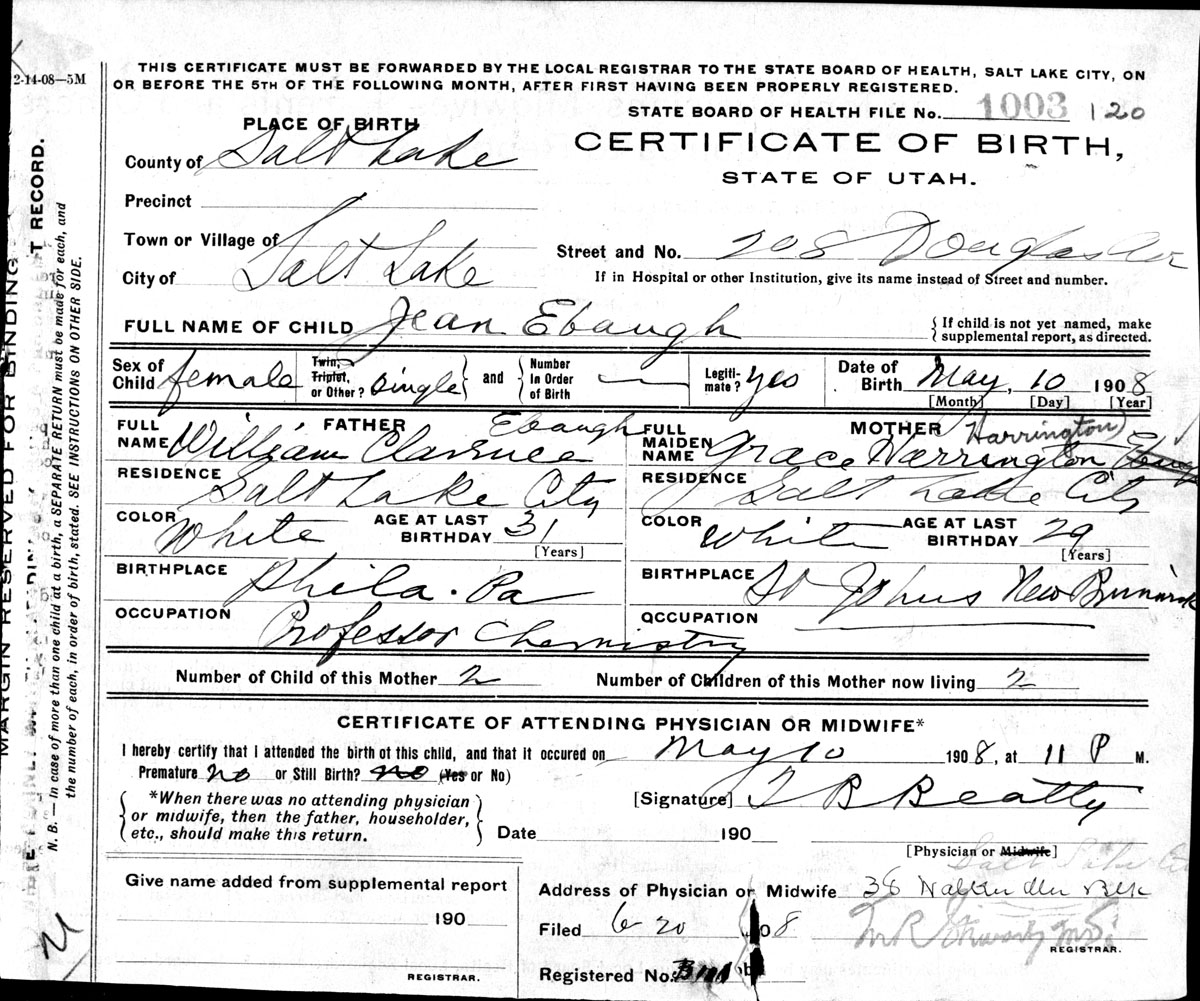 2-14-08—5M
THIS CERTIFICATE MUST BE FORWARDED BY THE LOCAL REGISTRAR TO THE STATE BOARD OF HEALTH, SALT LAKE CITY, ON
OR BEFORE THE 5TH OF THE FOLLOWING MONTH, AFTER FIRST HAVING BEEN PROPERLY REGISTERED.
STATE BOARD OF HEALTH FILE No. 1003 120
PLACE OF BIRTH
CERTIFICATE OF BIRTH,
County of Salt Lake
STATE OF UTAH.
Precinct
Town or Village of
Street and No. 208 Douglas
City of Salt Lake
If in Hospital or other Institution, give its name instead of Street and number.
FULL NAME OF CHILD Jean Ebaugh
{ If child is not yet named, make
supplemental report, as directed.
Sex of Child female
Twin, Triplet, or Other? Single and Number in Order of Birth —
Legitimate? yes
Date of Birth May, 10 1908
[Month] [Day] [Year]
FATHER
FULL NAME William Clarence Ebaugh
RESIDENCE Salt Lake City
COLOR White AGE AT LAST BIRTHDAY 31
[Years]
BIRTHPLACE Phila. Pa
OCCUPATION Professor Chemistry
MOTHER
FULL MAIDEN NAME Grace Harrington Harrington)
RESIDENCE Salt Lake City
COLOR White AGE AT LAST BIRTHDAY 29
[Years]
BIRTHPLACE St Johns New Brunswick
OCCUPATION
Number of Child of this Mother 2 Number of Children of this Mother now living 2
CERTIFICATE OF ATTENDING PHYSICIAN OR MIDWIFE*
I hereby certify that I attended the birth of this child, and that it occured on May 10 1908, at 11 P M.
Premature no or Still Birth? no (Yes or No)
*When there was no attending physician
or midwife, then the father, householder,
etc., should make this return.
[Signature] T B Beatty
Date 190
[Physician or Midwife]
Give name added from supplemental report
190
REGISTRAR.
Address of Physician or Midwife 38
Filed 6 20 08
REGISTRAR.
Registered No.
MARGIN RESERVED FOR BINDING
T RECORD.
N. B.—In case of more than one child at a birth, a SEPARATE RETURN must be made for each, and
the number of each, in order of birth, stated. SEE INSTRUCTIONS ON OTHER SIDE.